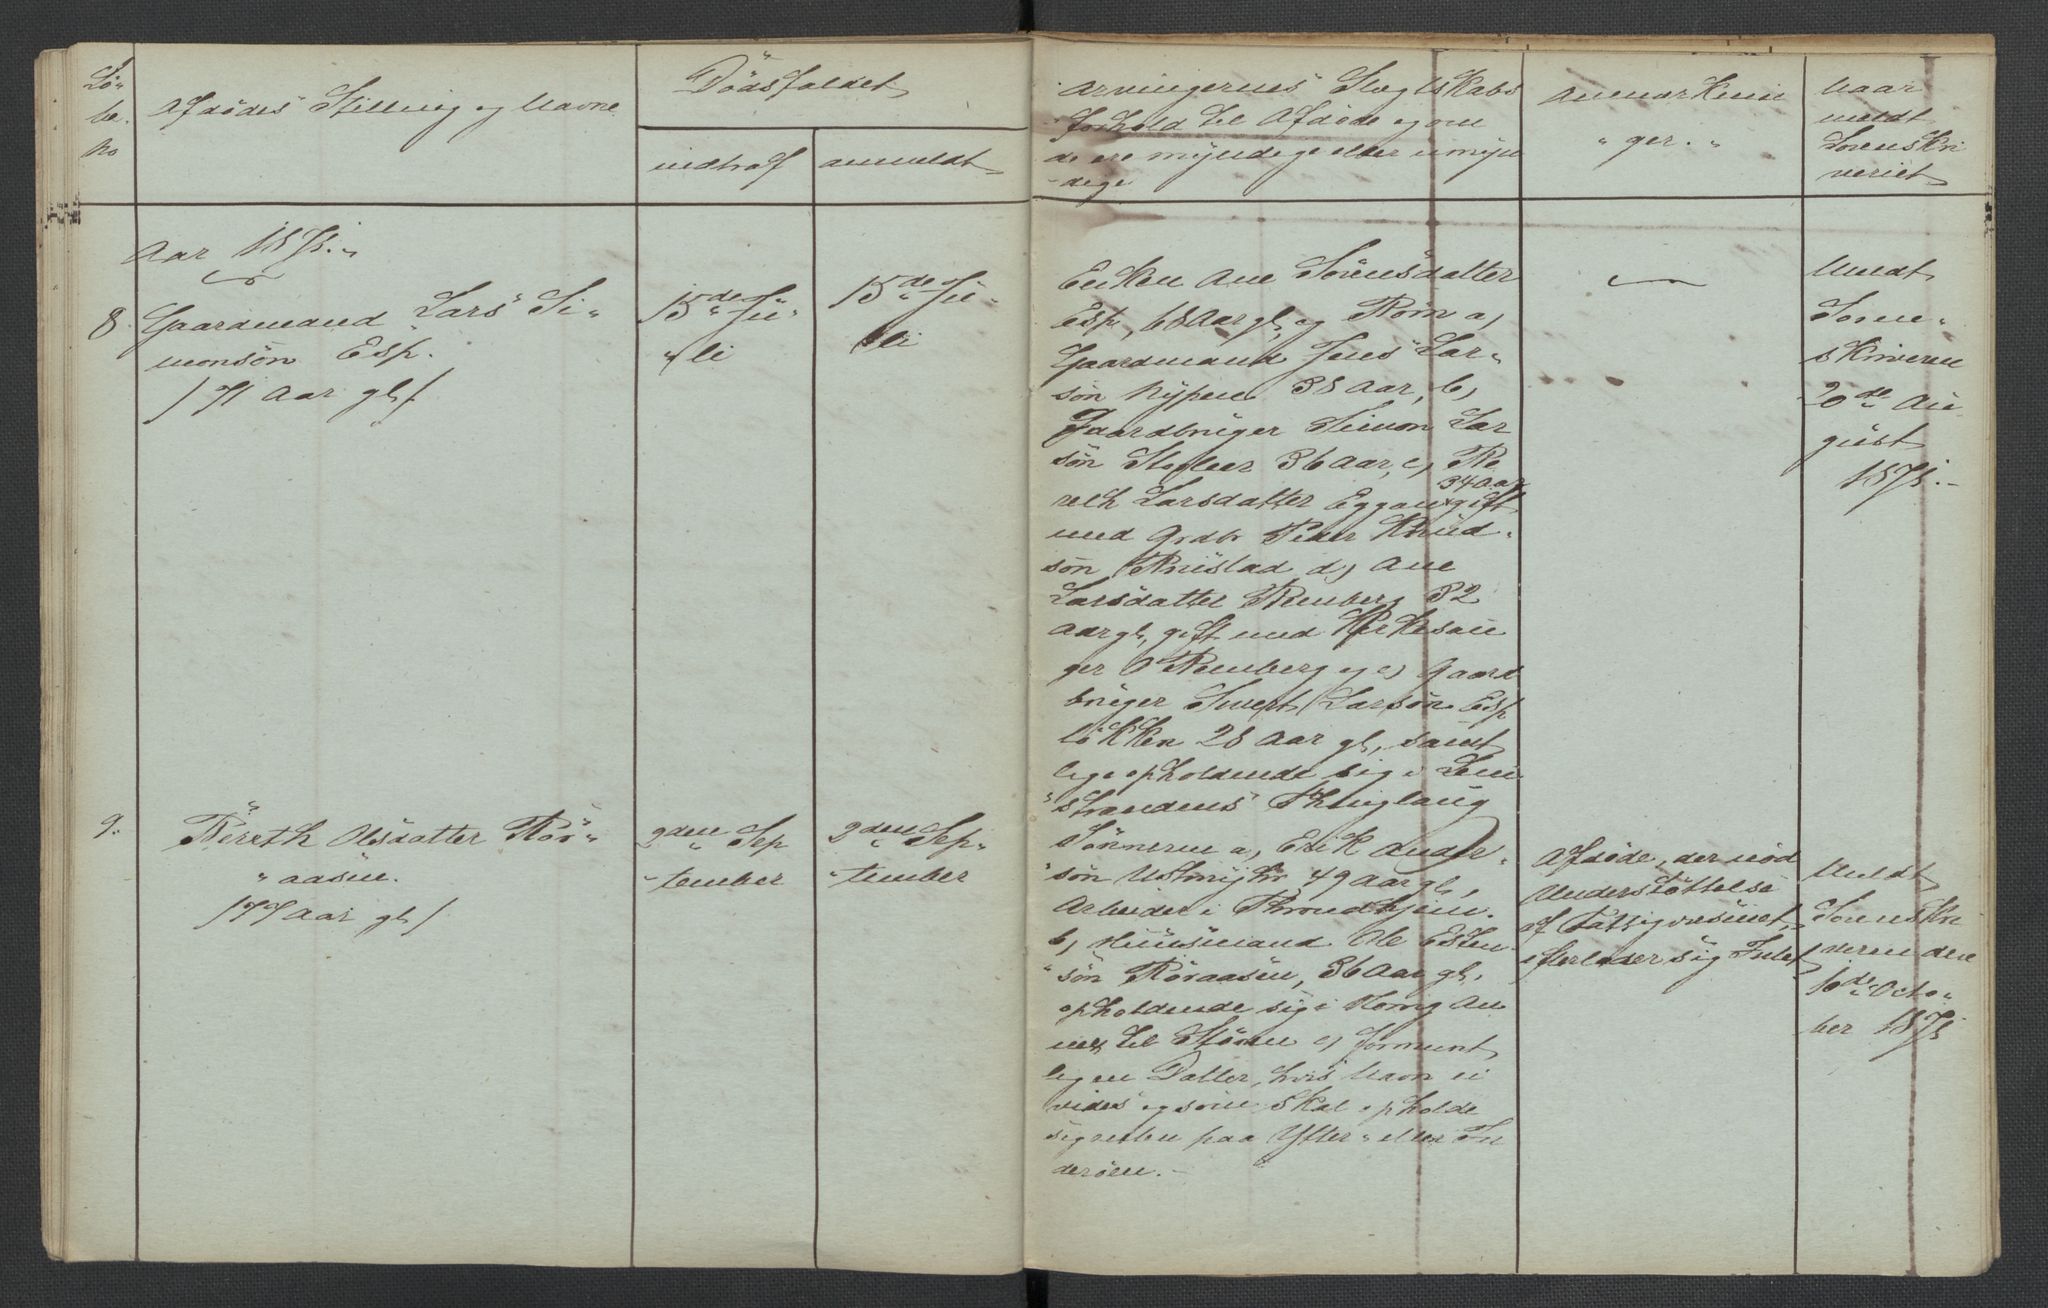 Lö-
be.
No
Afdödes Stilling og Navne
Dödsfaldet
indtraf
anmeldt
Arvingernes Slægtskabs
forhold til Afdöde og om
de ere myndige eller umyn
dige
Anmærknin
"ger."
Naar
meldt
Sorenskri
veriet
Aar 1875.
8. Gaardmand Lars Si-
monsön Esp.
/71 Aar gl/
15de Ju-
"li
15de Ju-
li
Enken Ane Sörensdatter
Esp, 68 Aar gl, og Börn a,
Gaardmand Jens Lar-
sön Nypen 38 Aar, b,
Gaardbruger Simon Lar
sön Stegleer 36 Aar, c, Be
34 Aar
reth Larsdatter Eggan gift
med Grdbr Peder Knud-
sön Ruistad d, Ane
Larsdatter Renberg 32
Aar gl, gift med Kirkesan
ger O Renberg og e, Gaard
bruger Sivert Larsön Esp
lökken 28 Aar gl, samt
lige opholdende sig i Lein
"strandens Thinglaug
Meldt
Soren-
skriveren
20de Au
gust
1875.
9. Bereth Olsdatter Rör-
"aasen.
/77 Aar gl/
2den Sep
-tember
2den Sep-
"tember
Sönnerne a, Erik Ander-
sön Ustmyhr 49 Aar gl,
Arbeider i Throndhjem.
b, Huusmand Ole Esten-
"sön Röraasen, 36 Aar gl,
opholdende sig i Horrig An
nex til Stören c, forment
lig en Datter, hvis Navn ei
vides og som skal opholde
sig enten paa Ytter- eller In
deröen.-
Afdöde, der nöd
Understöttelse
af Fattigvæsenet,
efterlader sig Intet
Meldt
Sorenskri
veren den
10de Octo-
ber 1875